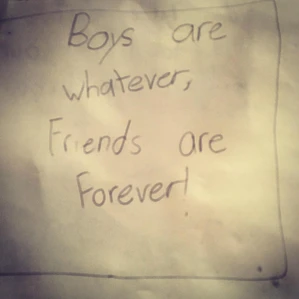 Boys are
whatever,
Friends are
Forever!